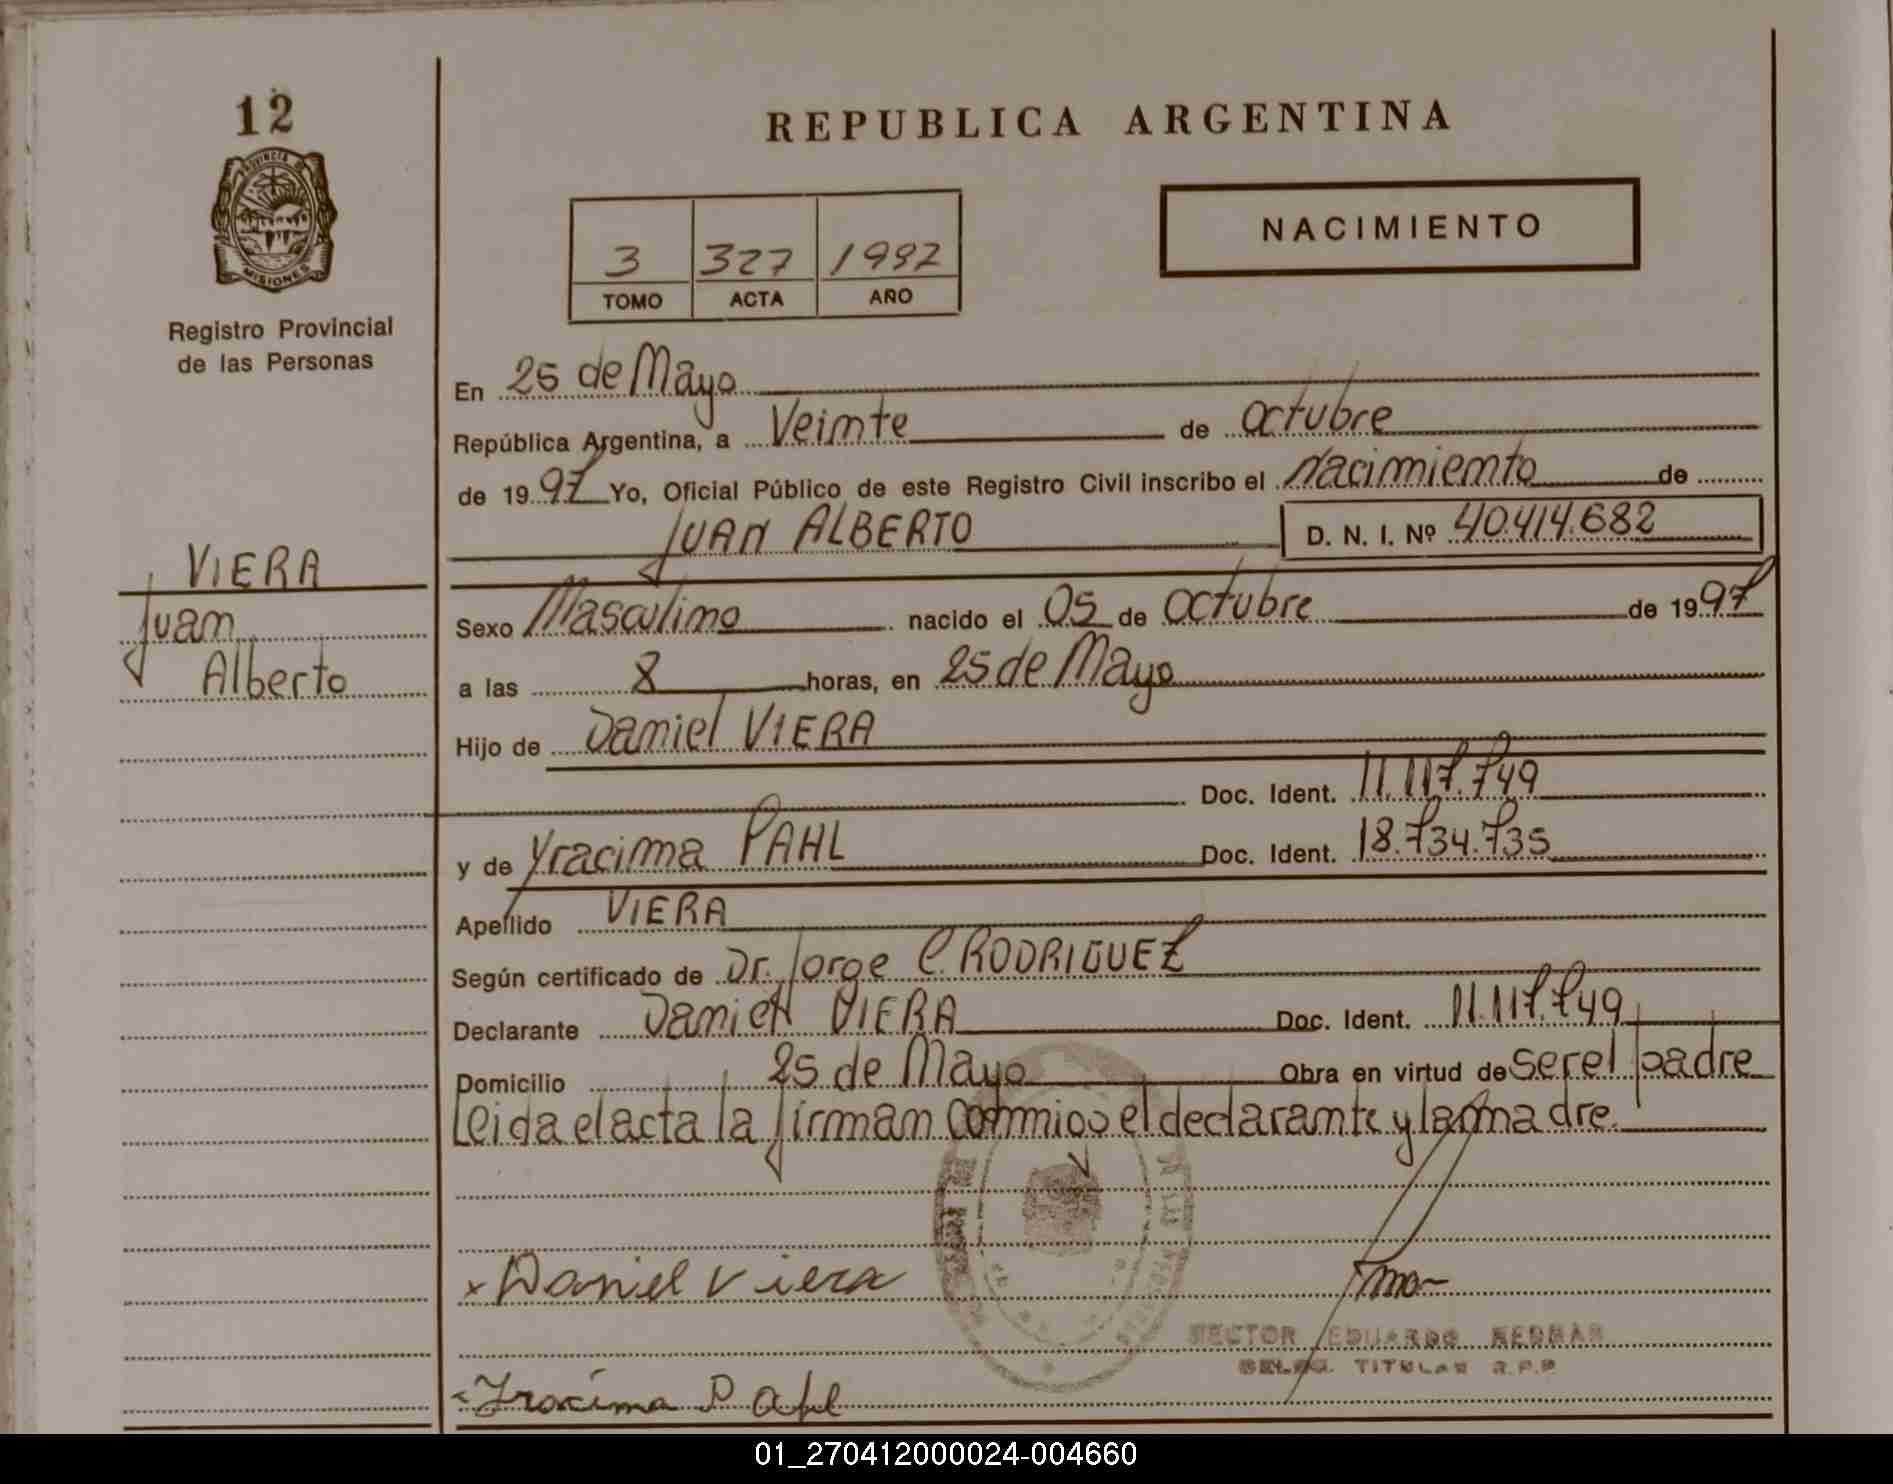 12
REPUBLICA ARGENTINA
PROVINCIA DE
MISIONES
Registro Provincial
de las Personas
3 327 1997
TOMO ACTA AÑO
NACIMIENTO
En 25 de Mayo
República Argentina, a Veinte de octubre
de 1997 Yo, Oficial Público de este Registro Civil inscribo el nacimiento de
JUAN ALBERTO D. N. I. Nº 40.414.682
VIERA
Juan
Alberto
Sexo Masculino nacido el 05 de octubre de 1997
a las 8 horas, en 25 de Mayo
Hijo de Daniel VIERA
Doc. Ident. 11.117.749
y de Yracima PAHL Doc. Ident. 18.734.735
Apellido VIERA
Según certificado de Dr. Jorge C. RODRIGUEZ
Declarante Daniel VIERA Doc. Ident. 11.117.749
Domicilio 25 de Mayo Obra en virtud de ser el padre
Leida el acta la firman conmigo el declarante y la madre.
x Daniel Viera
HECTOR EDUARDO
TITULAR R.P.P
Yracima Pahl
01_270412000024-004660